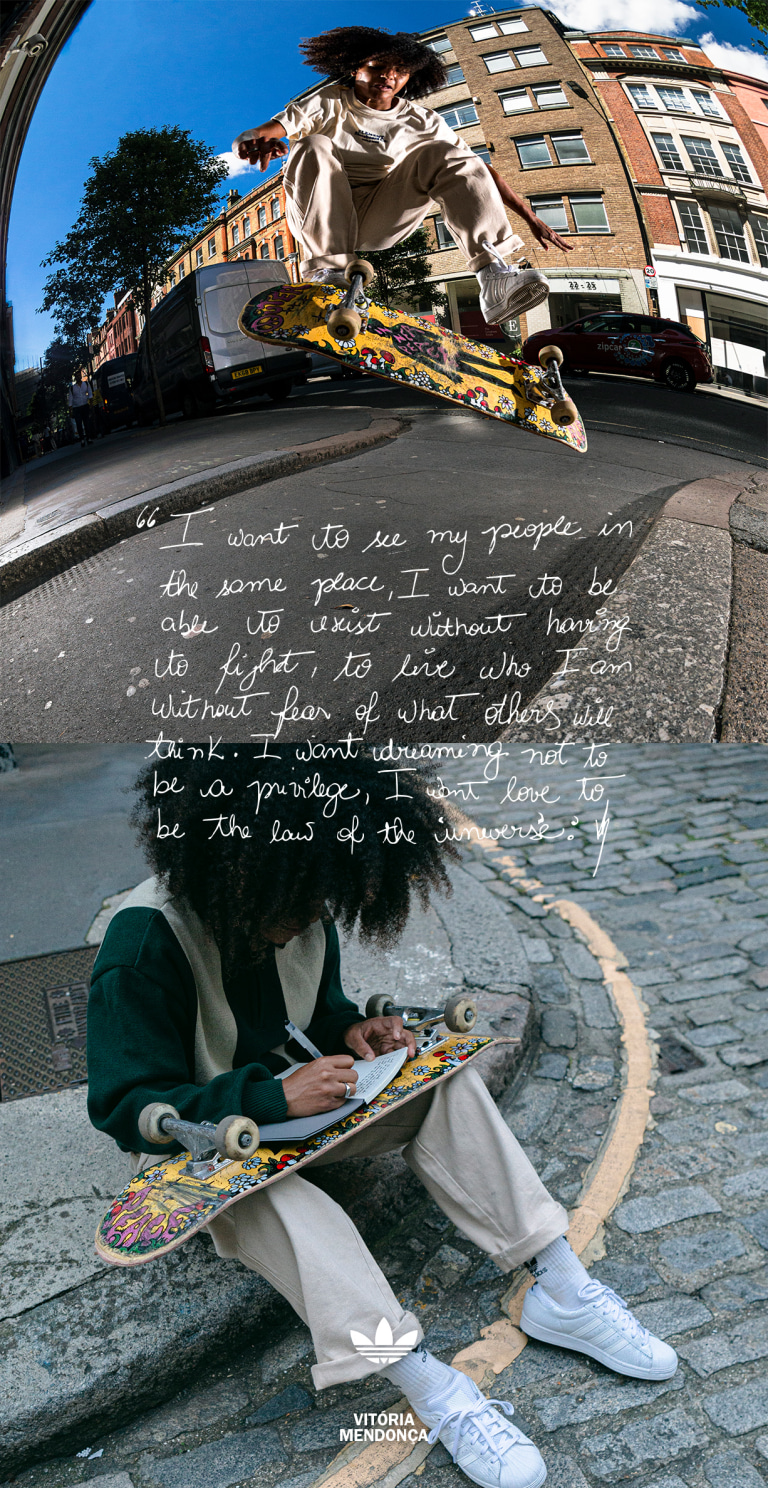 zipcar
EX68 BPV
20
“ I want to see my people in
the same place, I want to be
able to exist without having
to fight, to live who I am
without fear of what others will
think. I want dreaming not to
be a privilege, I want love to
be the law of the universe."
VITÓRIA
MENDONÇA